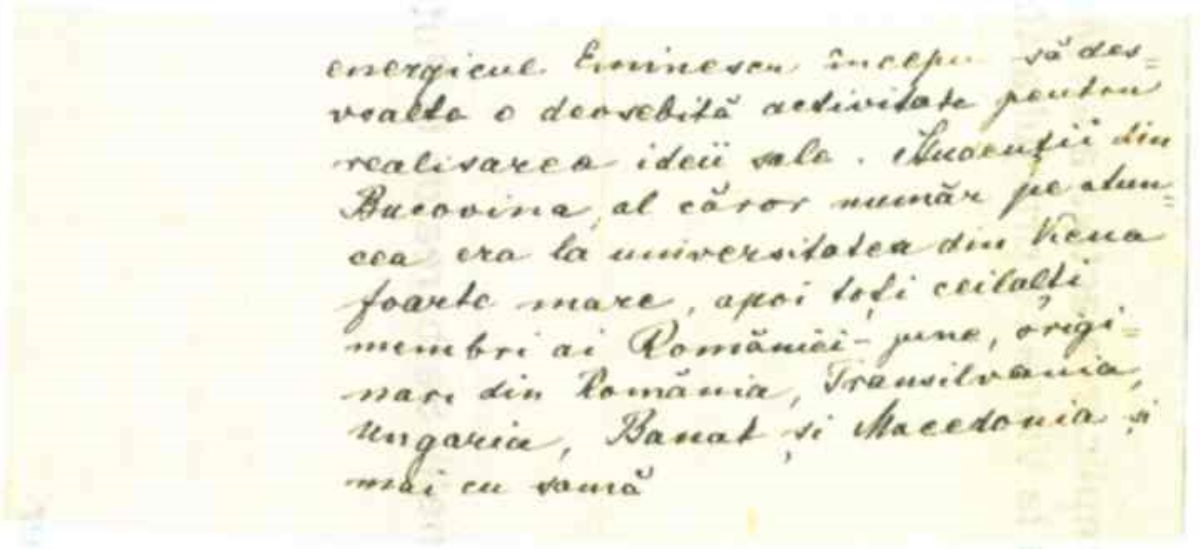 energicul Eminescu începu să des=
voalte o deosebită activitate pentru
realisarea ideii sale. Studenții din
Bucovina, al căror număr pe atun=
cea era la universitatea din Viena
foarte mare, apoi toți ceilalți
membri ai României-june, origi=
nari din România, Transilvania,
Ungaria, Banat și Macedonia și
mai cu samă